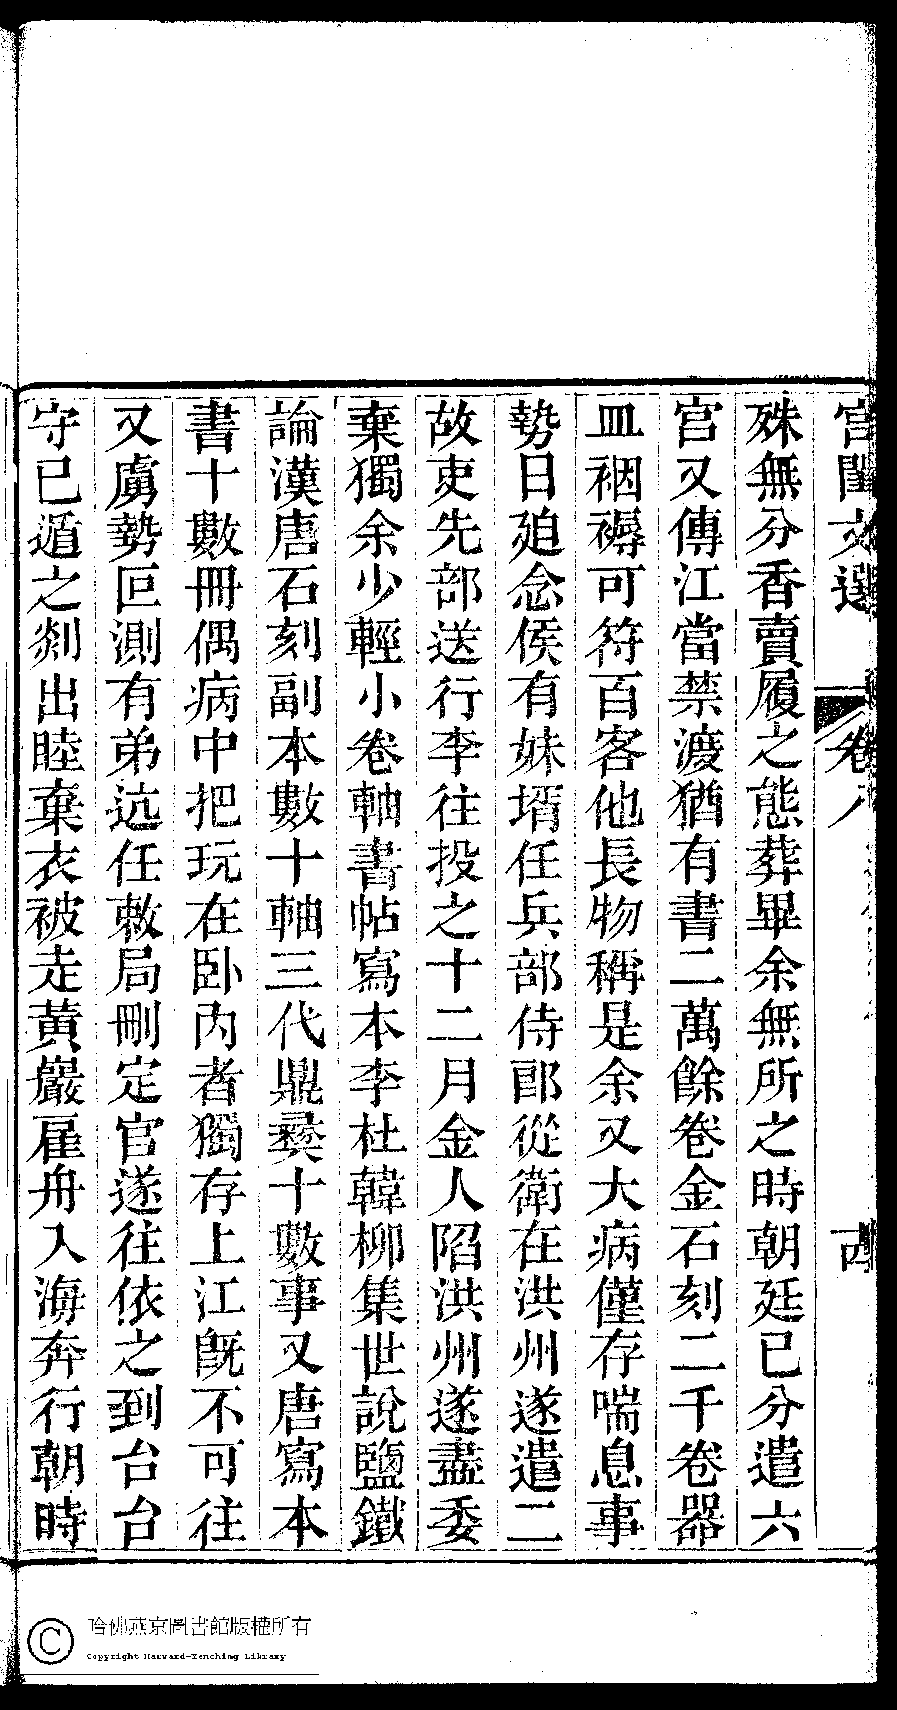 宮閨文選 卷八 古
殊無分香賣履之態葬畢余無所之時朝廷已分遣六
宮又傳江當禁渡猶有書二萬餘卷金石刻二千卷器
皿裀褥可符百客他長物稱是余又大病僅存喘息事
勢日廹念侯有妹壻任兵部侍郎從衛在洪州遂遣二
故吏先部送行李往投之十二月金人陷洪州遂盡委
棄獨余少輕小卷軸書帖寫本李杜韓柳集世說鹽鐵
論漢唐石刻副本數十軸三代鼎彝十數事又唐寫本
書十數冊偶病中把玩在卧內者獨存上江旣不可往
又虜勢叵測有弟迒任敕局刪定官遂往依之到台台
守已遁之剡出睦棄衣被走黃巖雇舟入海奔行朝時
哈佛燕京圖書館版權所有
Copyright Harvard-Yenching Library